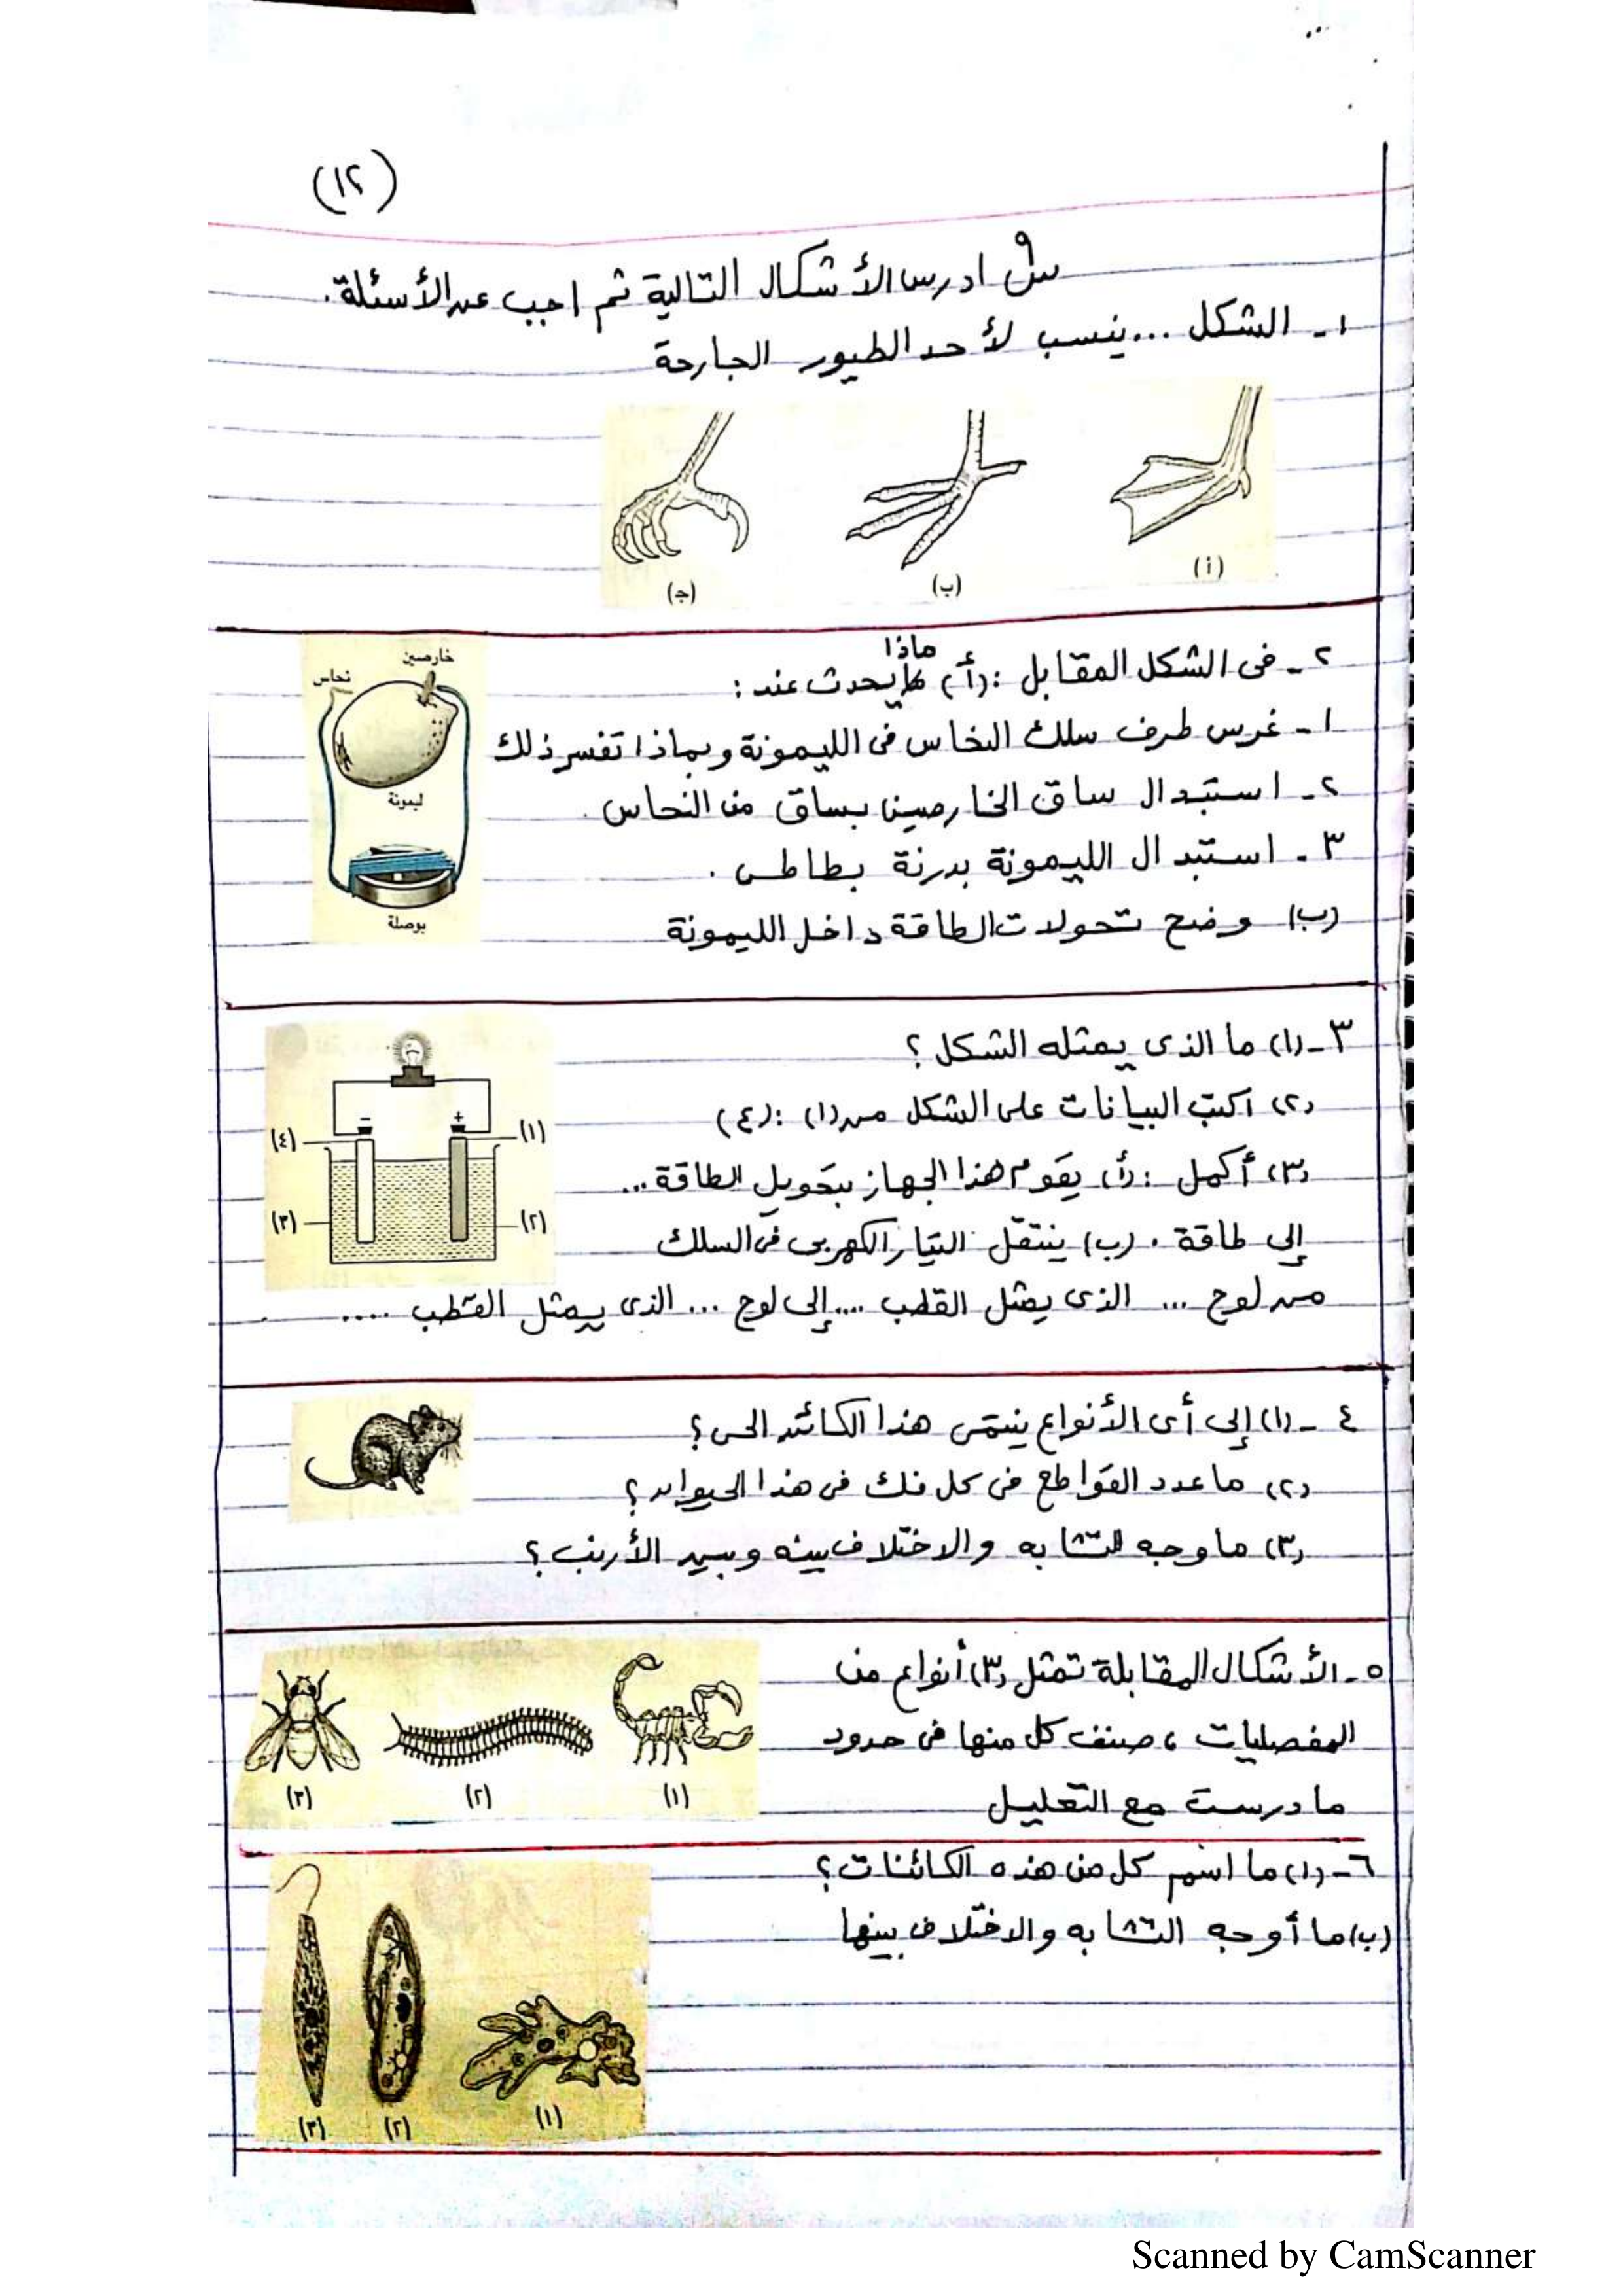 (١٢)
س٩ ادرس الأشكال التالية ثم اجب عن الأسئلة.
١- الشكل ... ينسب لأحد الطيور الجارحة
(أ)
(ب)
(ج)
٢- فى الشكل المقابل : (أ) ماذا يحدث عند :
١- غرس طرف سلك النحاس فى الليمونة وبماذا تفسر ذلك
٢- استبدال ساق الخارصين بساق من النحاس .
٣- استبدال الليمونة بدرنة بطاطس .
(ب) وضح تحولات الطاقة داخل الليمونة
خارصين
نحاس
ليمونة
بوصلة
٣- (١) ما الذى يمثله الشكل ؟
(٢) اكتب البيانات على الشكل من (١) : (٤)
(٣) أكمل : (أ) يقوم هذا الجهاز بتحويل الطاقة ...
إلى طاقة . (ب) ينتقل التيار الكهربى فى السلك
من لوح ... الذى يمثل القطب .... إلى لوح ... الذى يمثل القطب ....
- +
(٤) (١)
(٣) (٢)
٤- (١) إلى أى الأنواع ينتمى هذا الكائن الحى ؟
(٢) ما عدد القواطع فى كل فك فى هذا الحيوان ؟
(٣) ما وجه التشابه والاختلاف بينه وبين الأرنب ؟
٥- الأشكال المقابلة تمثل (٣) أنواع من
المفصليات ، صنف كل منها فى حدود
ما درست مع التعليل
(١)
(٢)
(٣)
٦- (١) ما اسم كل من هذه الكائنات ؟
(ب) ما أوجه التشابه والاختلاف بينها
(١)
(٢)
(٣)
Scanned by CamScanner